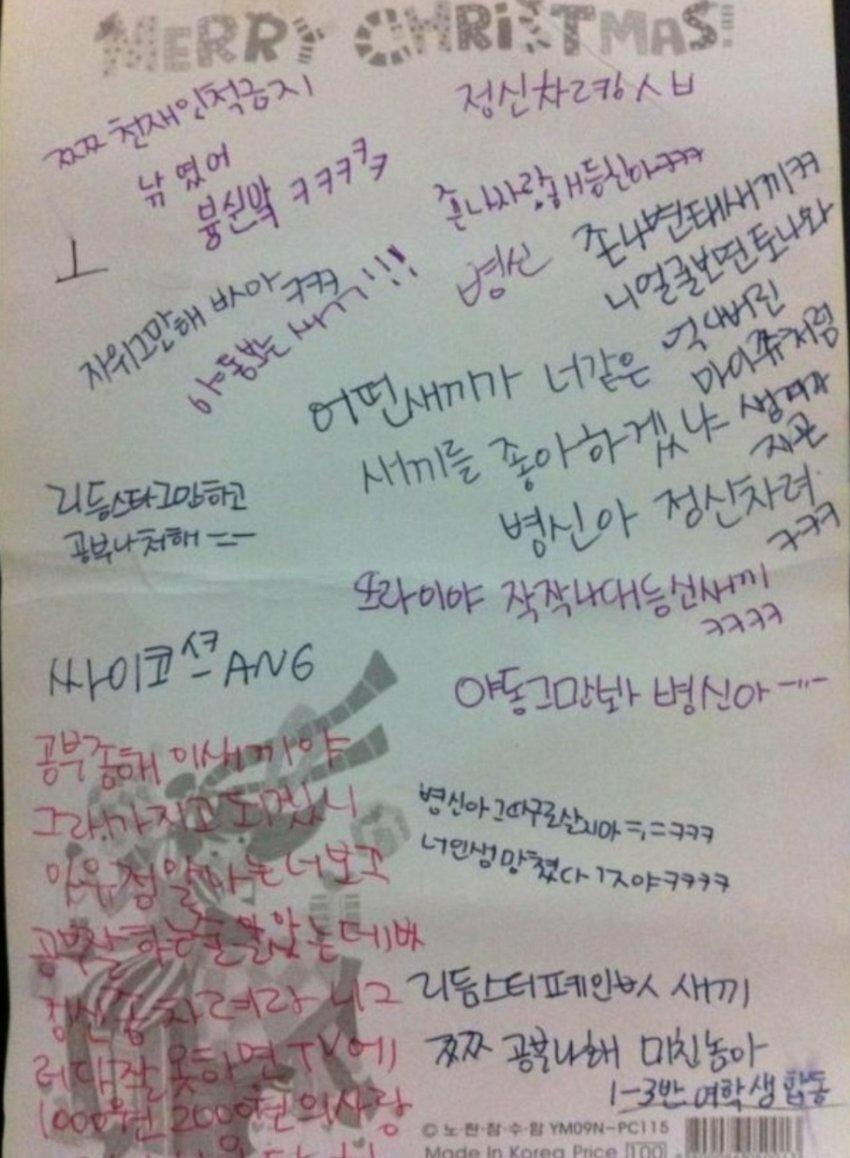 MERRY CHRISTMAS!
쯔쯔 천재인척금지
정신차려캉 ㅅㅂ
낚였어
븅신막 ㅋㅋㅋㅋㅋ
존나사랑해등신아ㅋㅋㅋ
병신
존나변태새끼ㅋㅋ
니얼굴보면토나와
ㅗ
자위그만해 ㅋㅋㅋ
야동보는 새끼!!!
어떤새끼가 너같은
마이쮸처럼
새끼를 좋아하겠냐
생겨가지곤
병신아 정신차려
ㅋㅋㅋ
리듬스타그만하고
공부나처해 ㅡㅡ
또라이야 작작나대등신새끼
ㅋㅋㅋㅋ
싸이코 ANG
야동그만봐 병신아 ㅡㅡ
공부좀해 이새끼야
그래가지고 되겠니
보고
공부잘하는줄알았는데
정신좀차려라 니그
러다잘못하면 TV에
1000원 2000원의사랑
병신아그따구로살지마 ㅋㅋㅋ
너인생망쳤다 ㅋㅋㅋㅋ
리듬스타페인 새끼
쯔쯔 공부나해 미친놈아
1-3반 여학생 합동
© 노·란·참·수·람 YM09N-PC115
Made In Korea Price 100